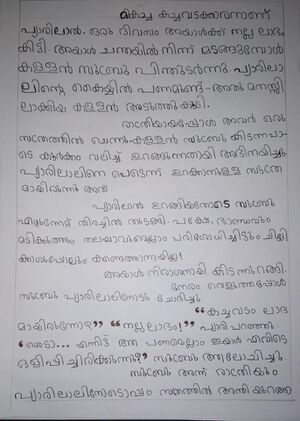 മികച്ച കച്ചവടക്കാരനാണ്
പ്യാരിലാൽ. ഒരു ദിവസം അയാൾക്ക് നല്ല ലാഭം
കിട്ടി. അയാൾ ചന്തയിൽ നിന്ന് മടങ്ങുമ്പോൾ
കള്ളൻ സുബ്ബു പിന്തുടർന്നു. പ്യാരിലാ
ലിന്റെ കൈയ്യിൽ പണമുണ്ട്- അത് മനസ്സി
ലാക്കിയ കള്ളൻ അടുത്തുകൂടി.
രാത്രിയായപ്പോൾ അവർ ഒരു
സത്രത്തിൽ ചെന്നു. കള്ളൻ സുബ്ബു കിടന്നപാ
ടെ കൂർക്കം വലിച്ച് ഉറങ്ങുന്നതായി അഭിനയിച്ചു.
പ്യാരിലാലിനെ പെട്ടെന്ന് ഉറക്കാനുള്ള സൂത്ര
മായിരുന്നു അത്
പ്യാരിലാൽ ഉറങ്ങിയതോടെ സുബ്ബു
എഴുന്നേറ്റ് തിരച്ചിൽ തുടങ്ങി. പക്ഷേ, ഭാണ്ഡവും
മടിക്കുത്തും തലയണയുമെല്ലാം പരിശോധിച്ചിട്ടും ചില്ലി
ക്കാശുപോലും കണ്ടെത്താനായില്ല!
അയാൾ നിരാശനായി കിടന്നുറങ്ങി.
നേരം വെളുത്തപ്പോൾ
സുബ്ബു പ്യാരിലാലിനോടു ചോദിച്ചു.
"കച്ചവടം ലാഭ
മായിരുന്നോ?" "നല്ല ലാഭം!" പ്യാരി പറഞ്ഞു.
'ശെടാ... എന്നിട്ട് ആ പണമെല്ലാം ഇയാൾ എവിടെ
ഒളിപ്പിച്ചിരിക്കുന്നു?' സുബ്ബു ആലോചിച്ചു.
സുബ്ബു അന്ന് രാത്രിയും
പ്യാരിലാലിനോടൊപ്പം സത്രത്തിൽ അന്തിയുറങ്ങി